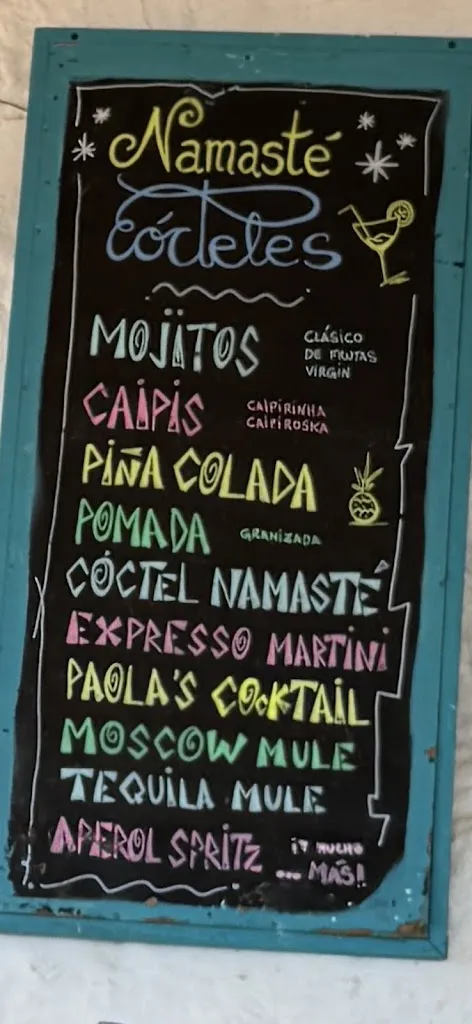 Namasté
Cócteles
MOJITOS
CLÁSICO
DE FRUTAS
VIRGIN
CAIPIS
CAIPIRINHA
CAIPIROSKA
PIÑA COLADA
POMADA GRANIZADA
CÓCTEL NAMASTÉ
EXPRESSO MARTINI
PAOLA'S COCKTAIL
MOSCOW MULE
TEQUILA MULE
APEROL SPRITZ
¡Y MUCHO
... MÁS!!